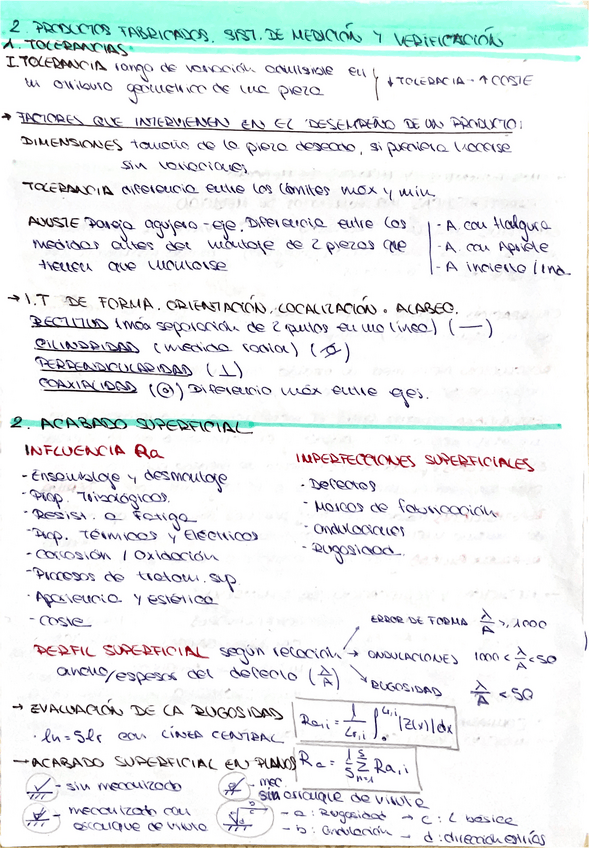 2. PRODUCTOS FABRICADOS. SIST. DE MEDICIÓN Y VERIFICACIÓN
1. TOLERANCIAS.
I. TOLERANCIA rango de variación admisible en
un atributo geometrico de una pieza
↓ TOLERACIA → ↑ COSTE
→ FACTORES QUE INTERVIENEN EN EL DESEMPEÑO DE UN PRODUCTO:
DIMENSIONES tamaño de la pieza deseado, si pudiera hacerse
sin variaciones
TOLERANCIA diferencia entre los límites máx y min
AJUSTE Pareja agujero-eje. Diferencia entre las
medidas antes del montaje de 2 piezas que
tienen que montarse
- A con Holgura
- A con Apriete
- A incierto / Ind.
→ I.T DE FORMA. ORIENTACIÓN. LOCALIZACIÓN. ACABEC.
RECTITUD (máx separación de 2 putos en una línea) (—)
CILINDRIDAD (medida radial) (⌭)
PERPENDICULARIDAD (⊥)
COAXIALIDAD (◎) Diferencia máx entre ejes.
2. ACABADO SUPERFICIAL
INFLUENCIA Ra
- Ensamblaje y desmontaje
- Prop. Tribológicas.
- Resist. a Fatiga
- Prop. Térmicas y Eléctricas
- Corrosión / Oxidación
- Procesos de tratam. sup.
- Apariencia y estética
- coste
IMPERFECCIONES SUPERFICIALES
- Defectos
- Marcas de fabricación
- ondulaciones
- Rugosidad.
PERFIL SUPERFICIAL según relación
ancho/espesor del defecto (λ/A)
ERROR DE FORMA λ/A >, 1000
→ ONDULACIONES 1000 < λ/A < 50
RUGOSIDAD λ/A < 50
→ EVALUACIÓN DE LA RUGOSIDAD
· ln = 5lr con LÍNEA CENTRAL
Ra,i = 1/Lr,i ∫₀^Lr,i |Z(x)| dx
Ra = 1/5 Σ⁵ₙ₌₁ Ra,i
→ ACABADO SUPERFICIAL EN PLANOS
- sin mecanizado
- mec. sin arranque de viruta
- mecanizado con
arranque de viruta
- a: Rugosidad → c: L básica
- b: Ondulación → d: dirección estrías